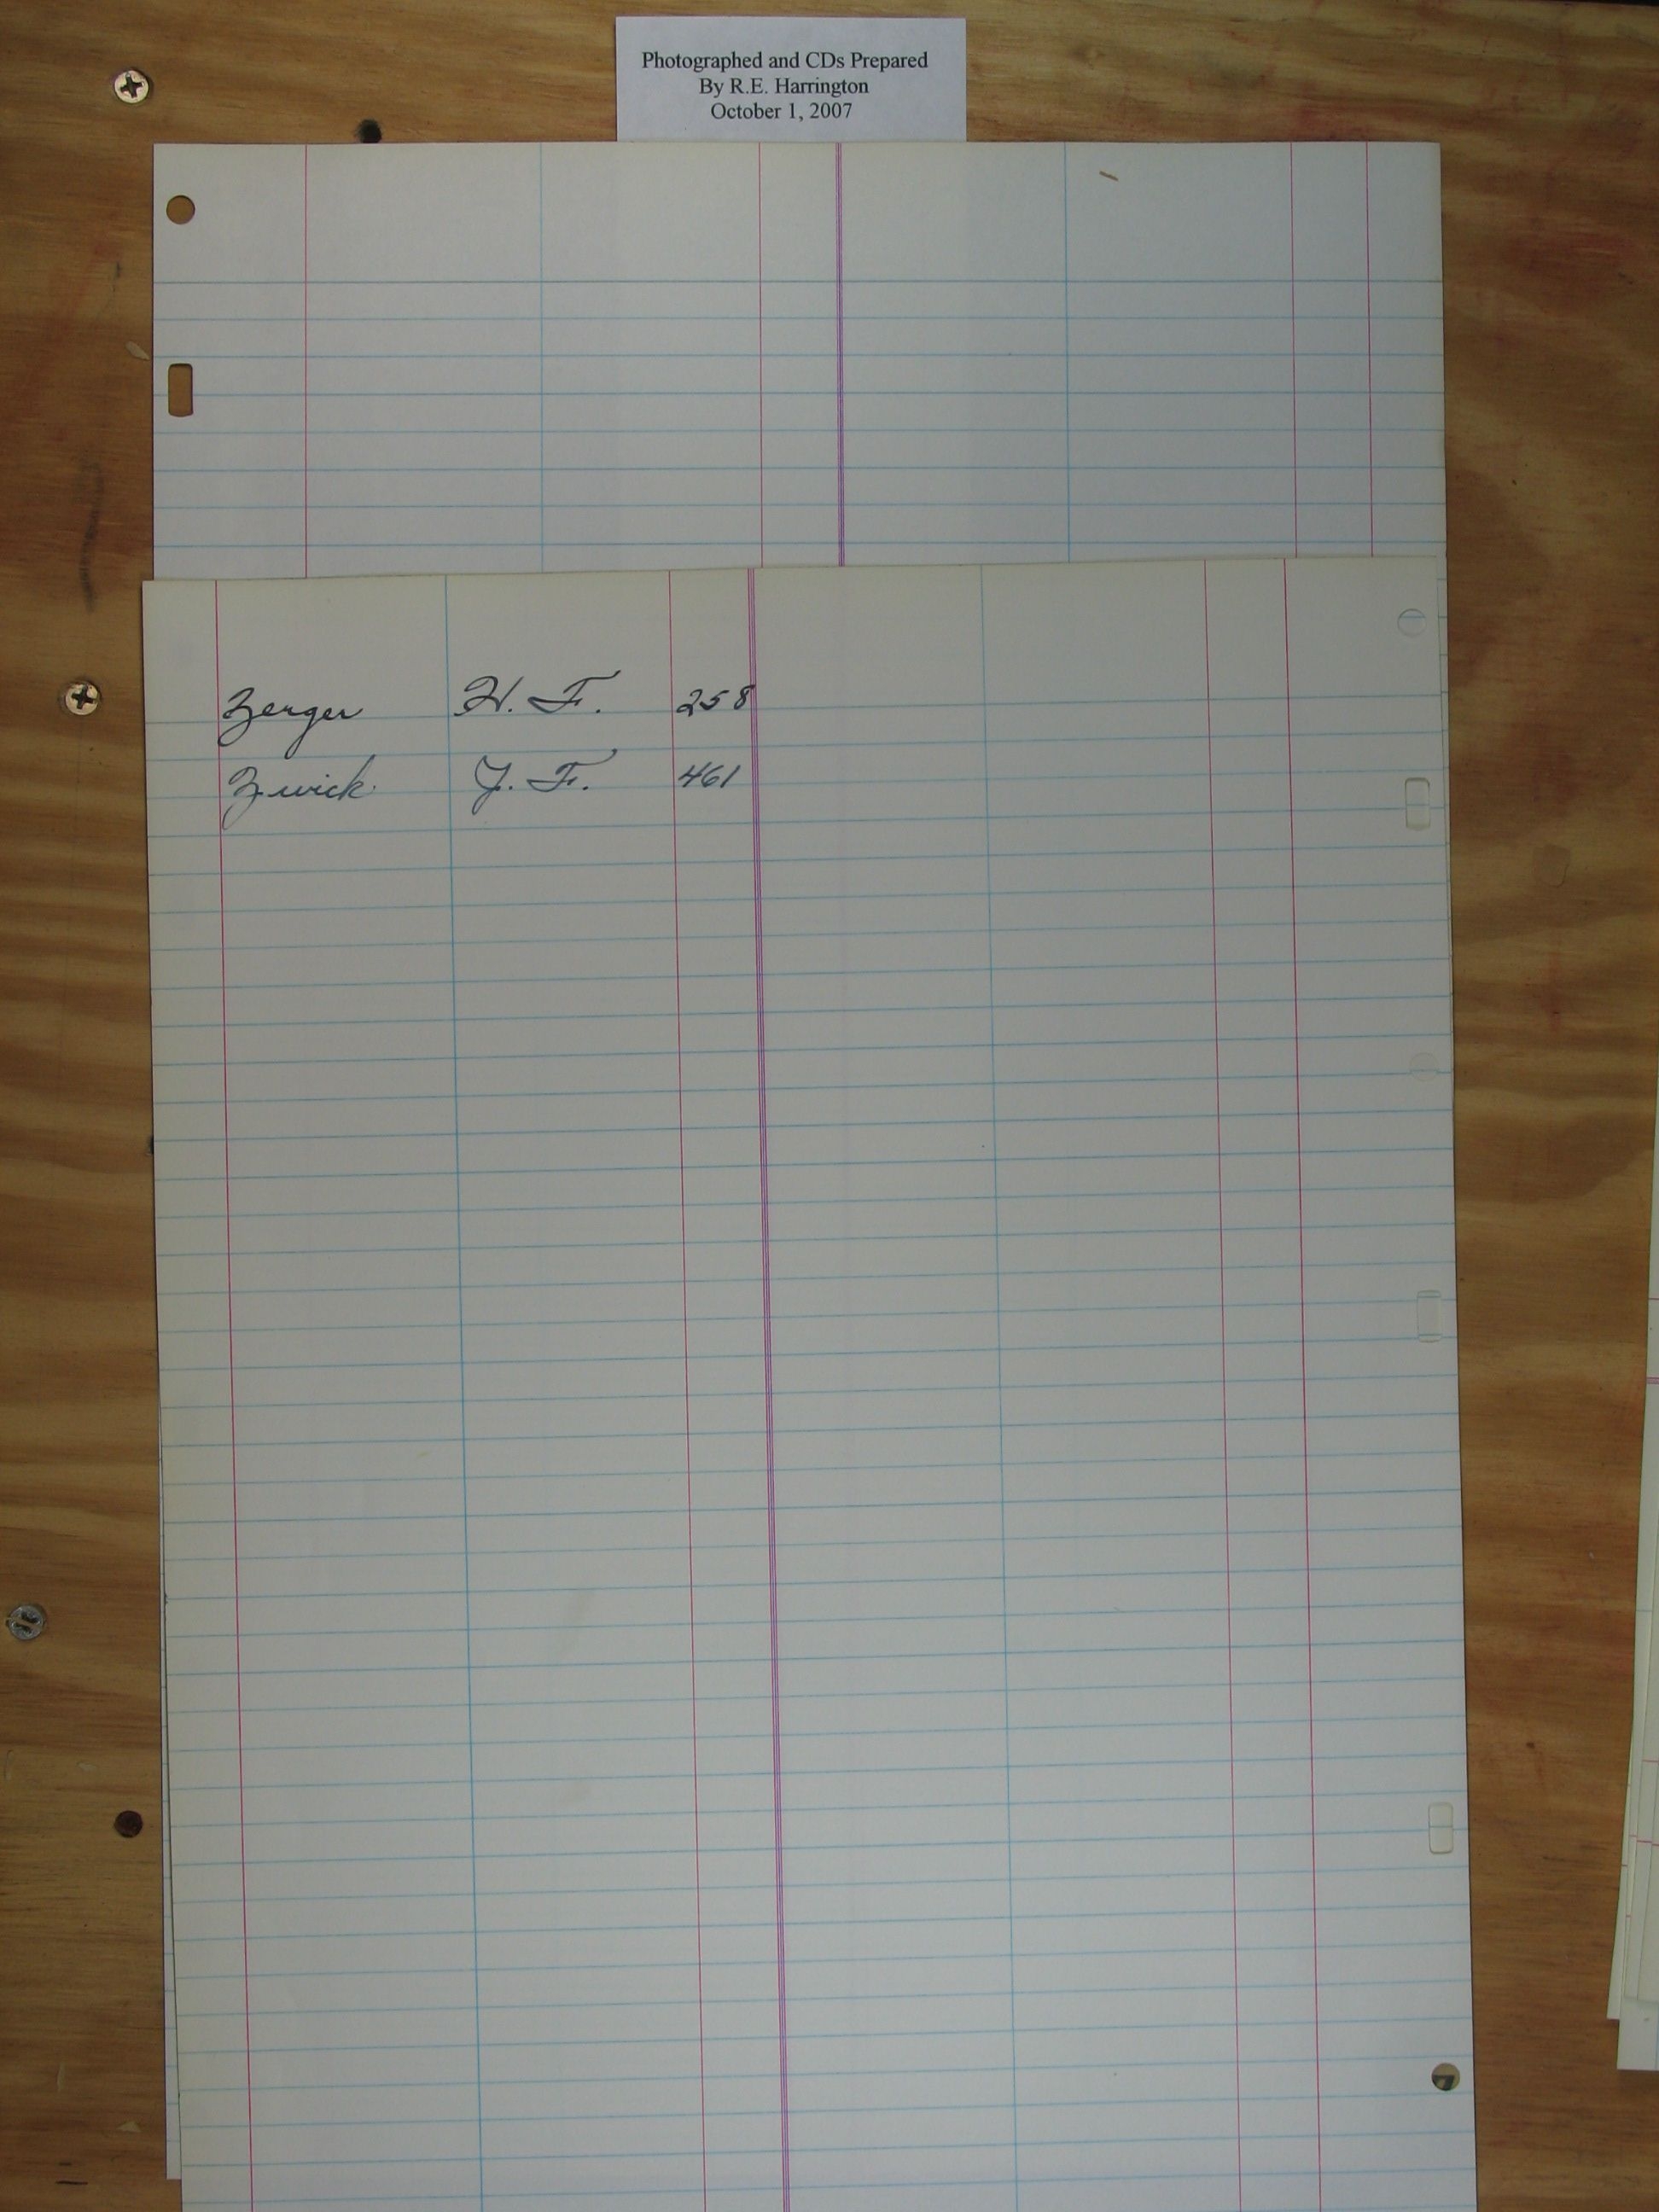 Photographed and CDs Prepared
By R.E. Harrington
October 1, 2007
Zerger H. F. 258
Zwick J. F. 461